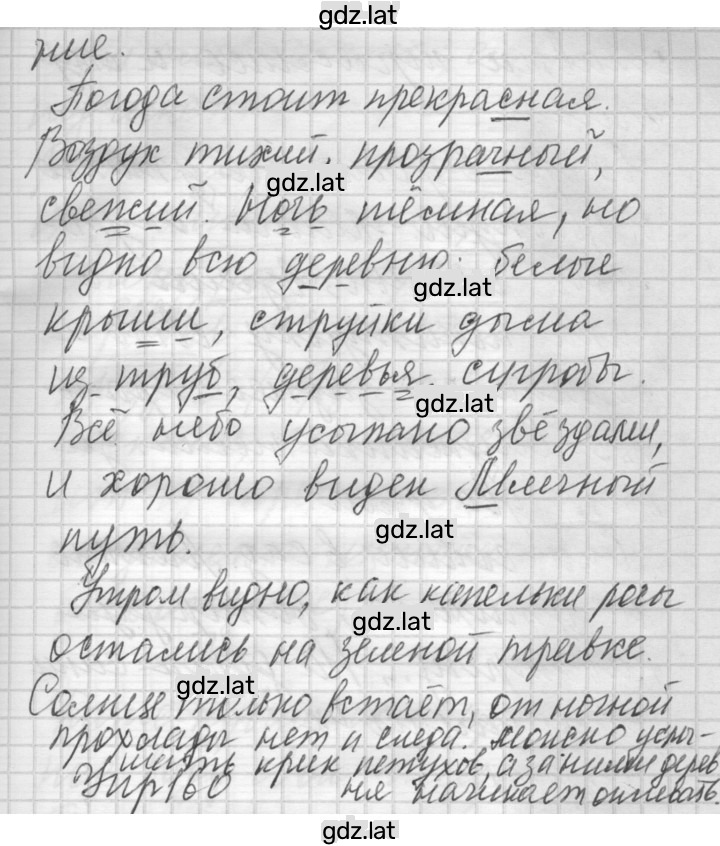 gdz.lat
ние.
Погода стоит прекрасная.
Воздух тихий, прозрачный,
gdz.lat
свежий. Ночь тёмная, но
видно всю деревню: белые
gdz.lat
крыши, струйки дыма
из труб, деревья, сугробы.
gdz.lat
Всё небо усыпано звёздами,
и хорошо виден Млечный
gdz.lat
путь.
Утром видно, как капельки росы
gdz.lat
остались на зеленой травке.
gdz.lat
Солнце только встаёт, от ночной
прохлады нет и следа. Можно услы-
шать крик петухов, а за ними дерев
Упр 160 ня начинает оживать.
gdz.lat